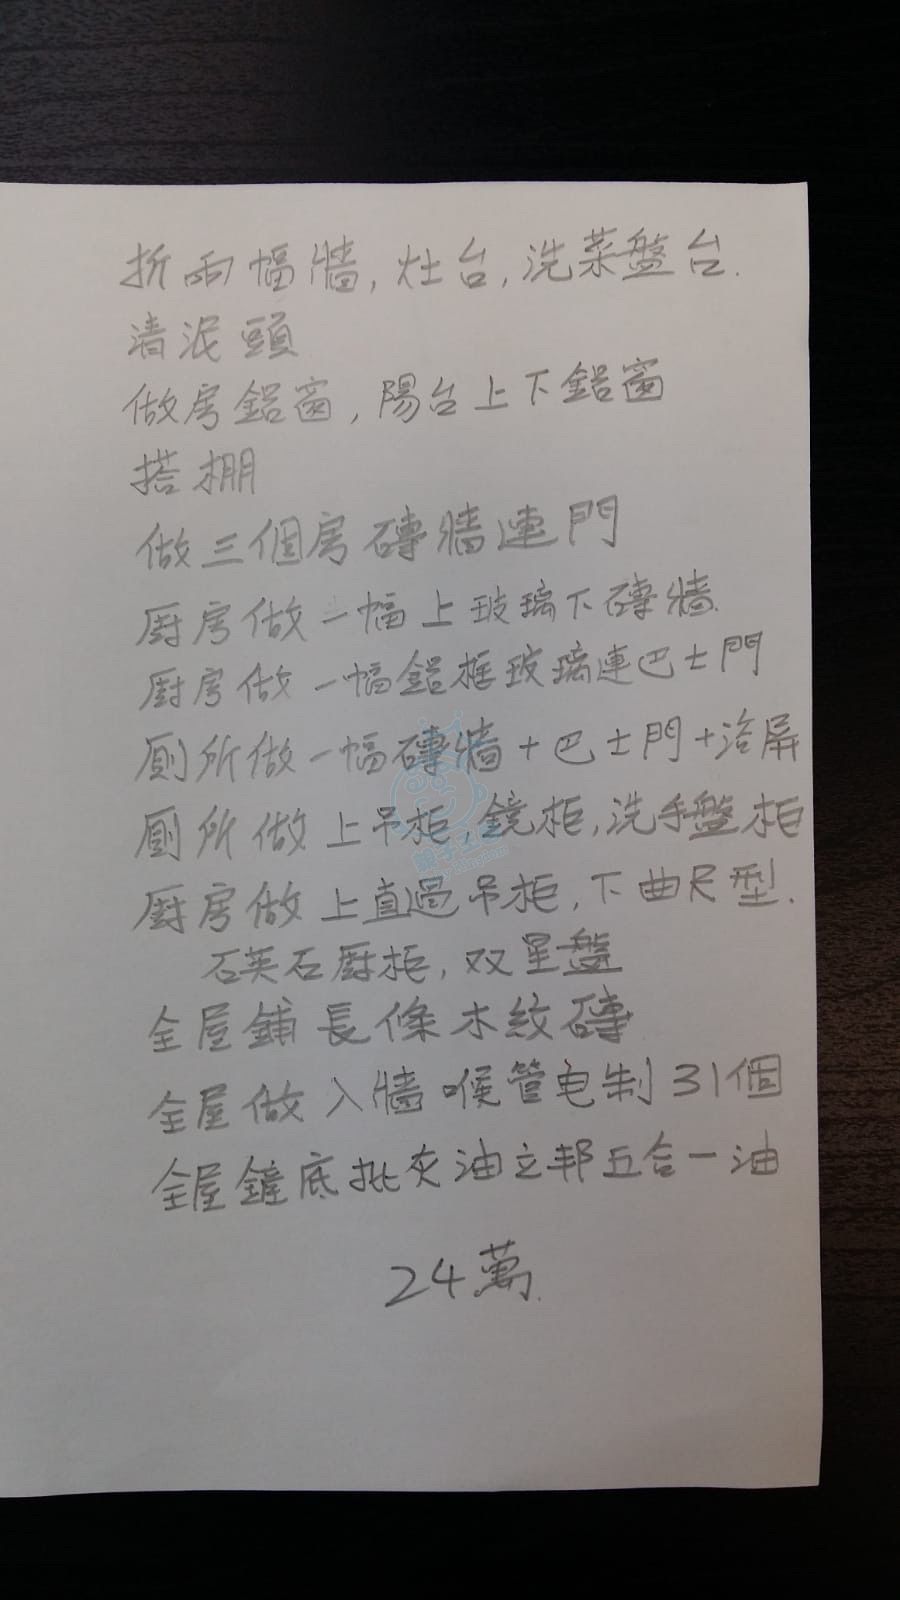 折兩幅牆,灶台,洗菜盤台.
清泥頭
做房鋁窗,陽台上下鋁窗
搭棚
做三個房磚牆連門
廚房做一幅上玻璃下磚牆.
廚房做一幅鋁框玻璃連巴士門
廁所做一幅磚牆+巴士門+浴屏
廁所做上吊柜,鏡柜,洗手盤柜
廚房做上直過吊柜,下曲尺型.
石英石廚柜,双星盤
全屋鋪長條木紋磚
全屋做入牆喉管电制31個
全屋鏟底批灰油立邦五合一油
24萬.